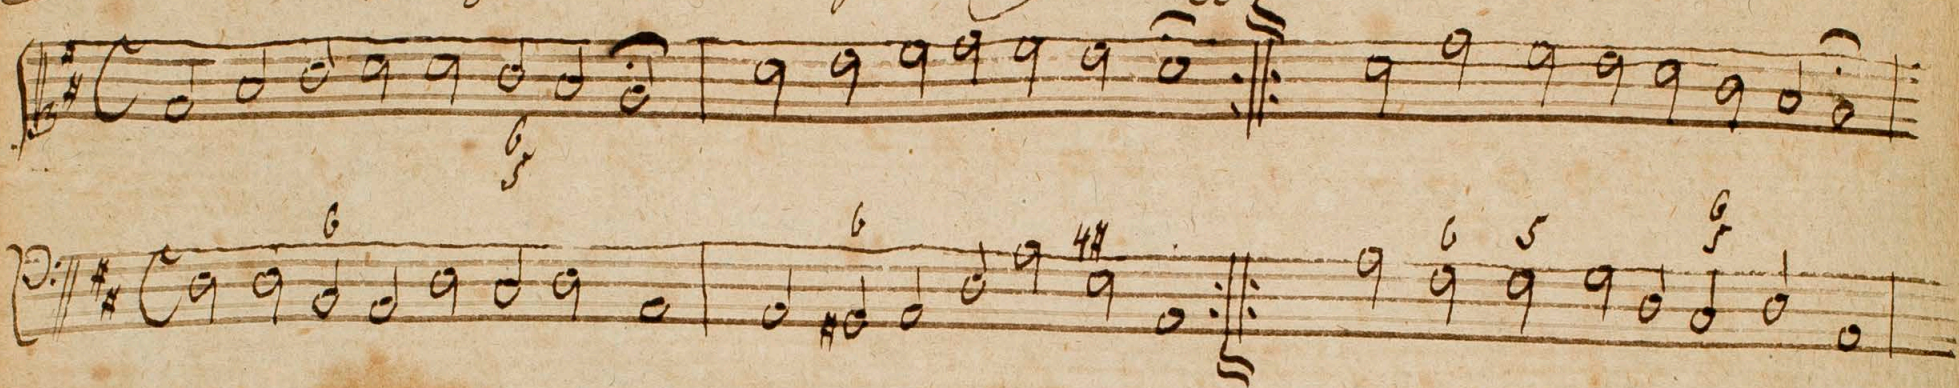 6
5
6 6 4# 6 5 6
5